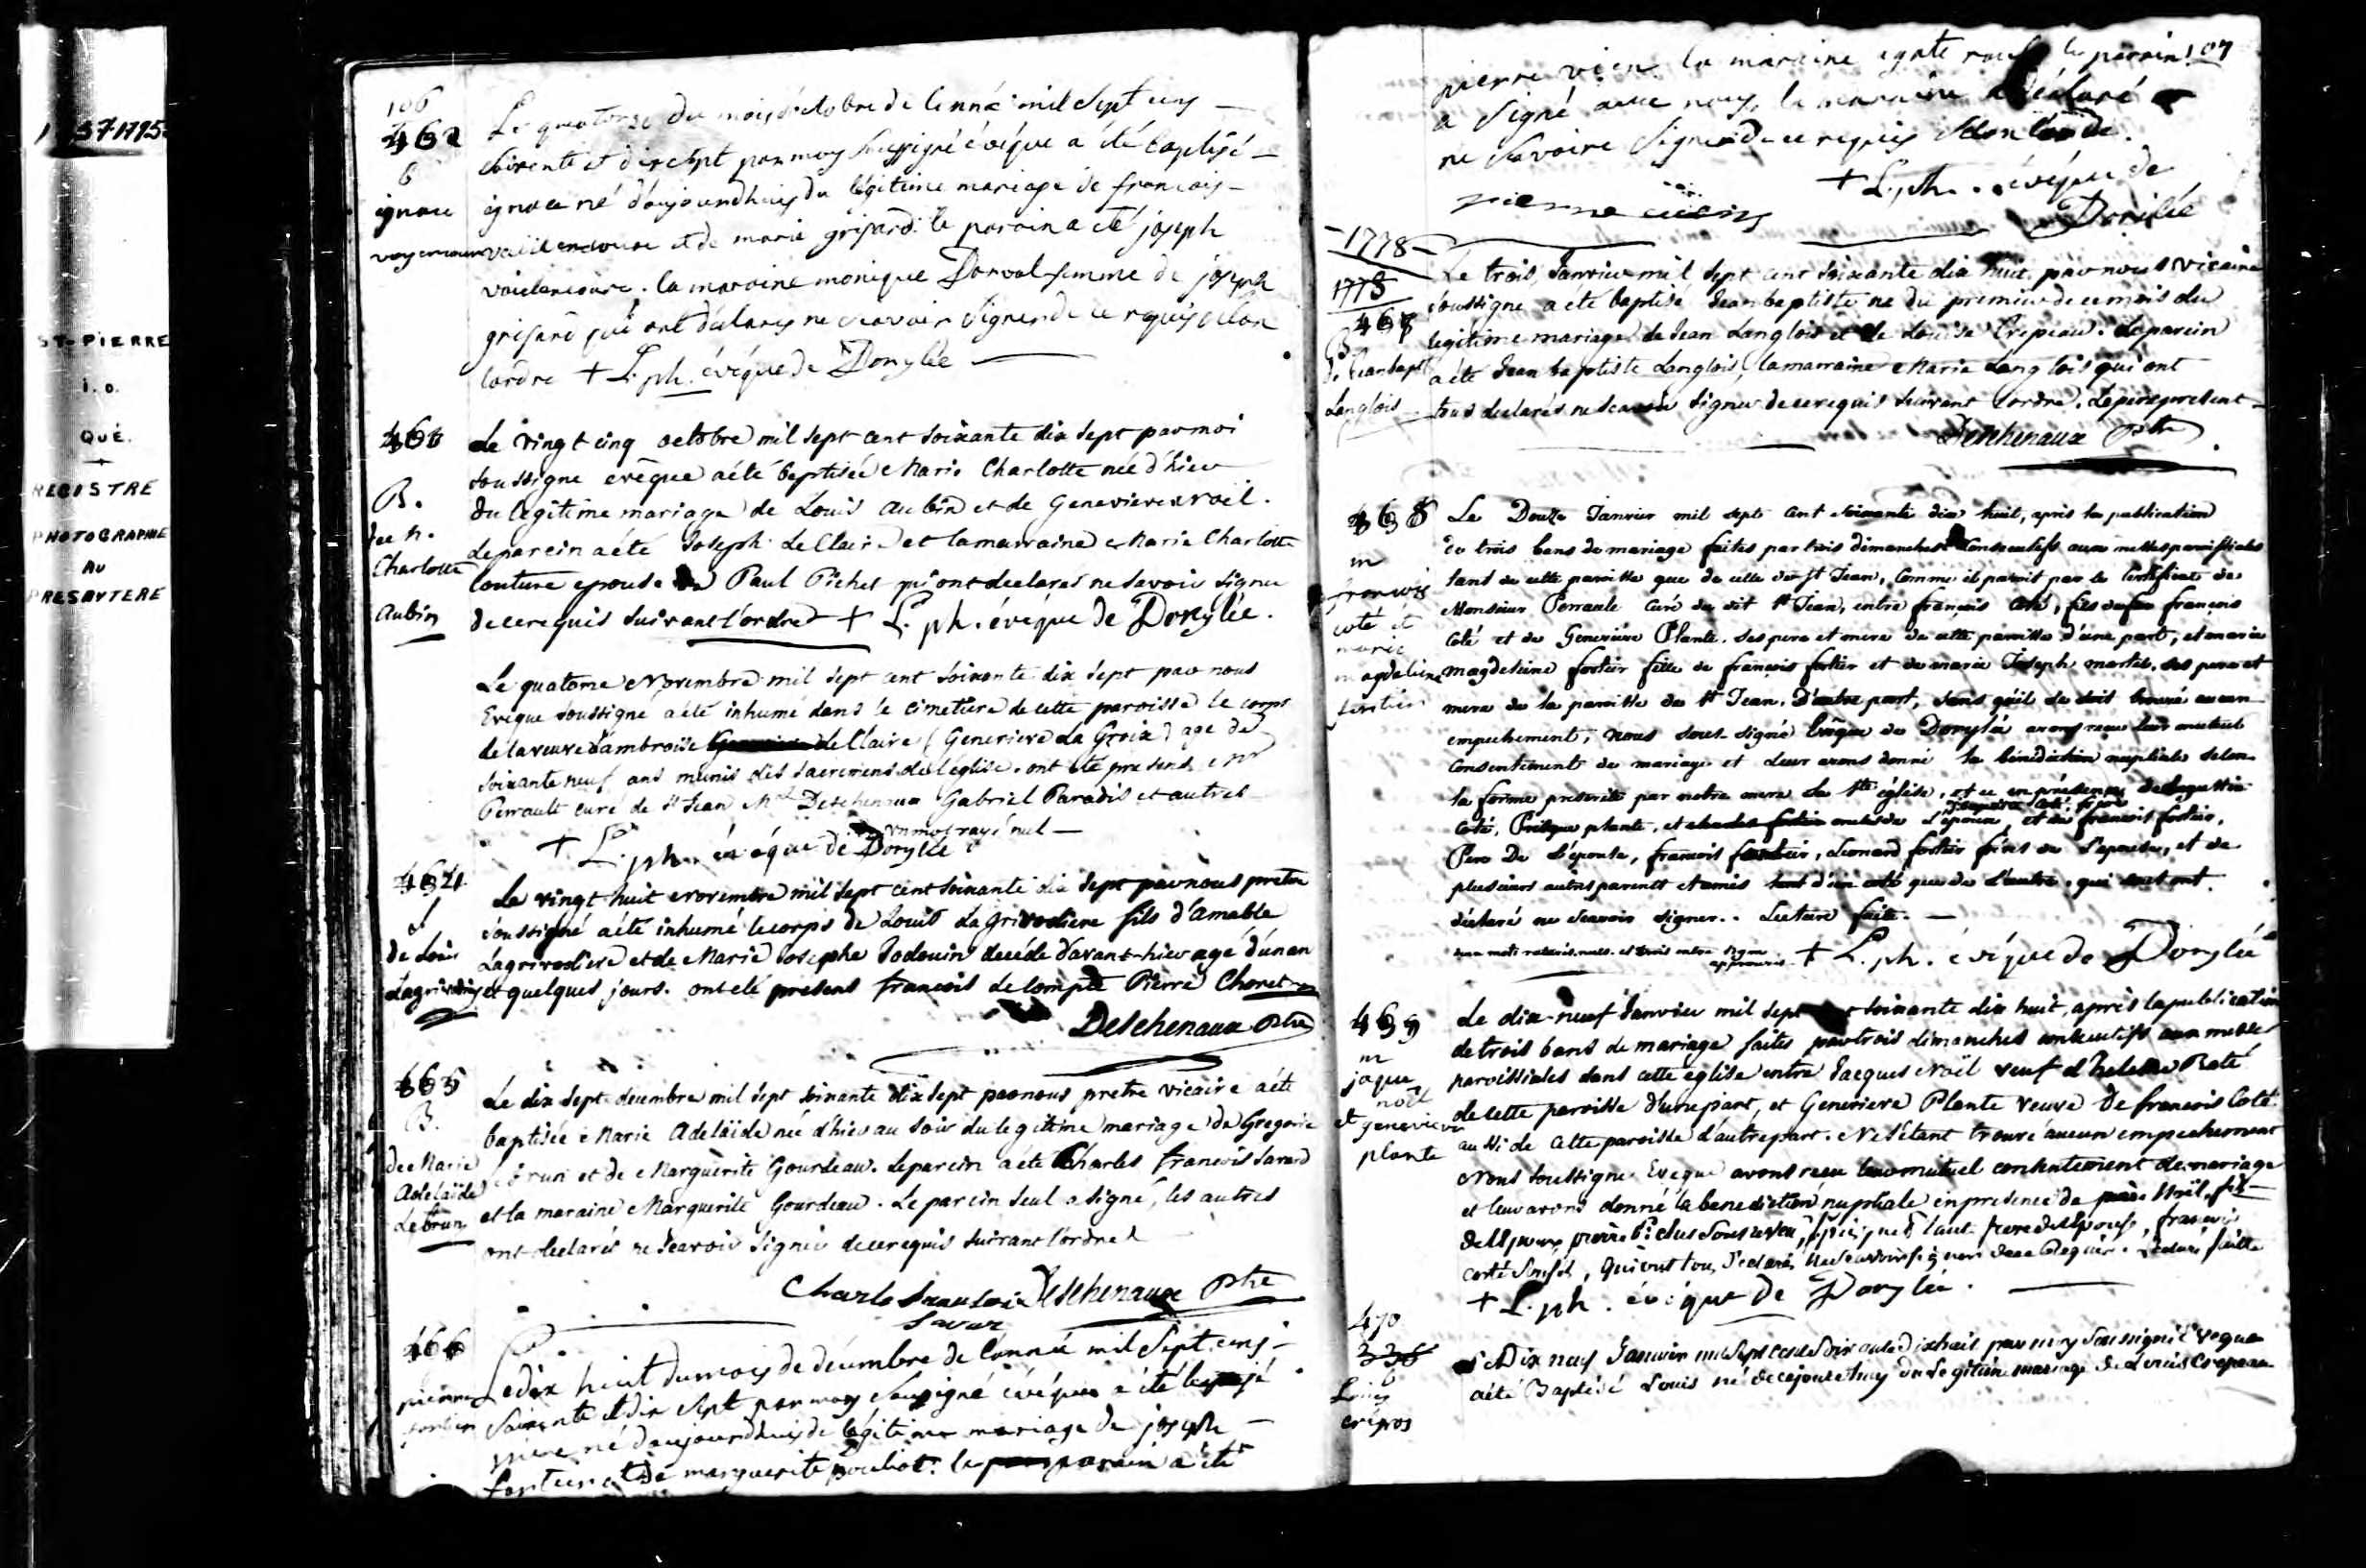 ST-PIERRE
I.O.
QUÉ.
REGISTRE
PHOTOGRAPHIE
AU
PRESBYTERE
106
462
B
ignace
Le quatorze du mois d'octobre de l'anné mil sept cens
soixente et dix sept par moy soussigné évéque a été baptisé
ignace né d'aujourdhuy du légitime mariage de francois
vaillencoure et de marie grisard. le parain a été joseph
vaillencoure. la maraine monique Dorval femme de joseph
grisard qui ont déclarés ne scavoir signer de ce requis selon
lordre + L. ph. évéque de Dorylée
B.
de M.
Charlotte
Aubin
Le vingt cinq octobre mil sept cent soixante dix sept par moi
soussigne evêque a été baptisée Marie Charlotte née d'hier
du legitime mariage de Louis aubin et de Genevieve Noël.
Le parein a été Joseph LeClair et la marraine Marie Charlotte
Couture epouse de Paul Pichet qui ont declarés ne savoir signer
de ce requis suivant l'ordre + L. ph. évéque de Dorylée.
Le quatorze Novembre mil sept cent soixante dix sept par nous
Evêque soussigné a été inhumé dans le cimetiere de cette paroisse le corps
de la veuve d'ambroise LeClaire (Genevieve La Groix) age de
soixante neuf ans munis des sacremens de l'église. ont été presens Mr
Perrault curé de St Jean Mr Deschenaux Gabriel Paradis et autres
un mot rayé nul
+ L. ph. évéque de Dorylée
464
de Louis
Lagrivodiere
Le vingt huit Novembre mil sept cent soixante dix sept par nous pretre
soussigné a été inhumé le corps de Louis Lagrivodiere fils d'Amable
Lagrivodiere et de Marie Josephe Jodouin decédé d'avant-hier agé d'un an
et quelques jours. ont été presens francois Lecompte Pierre Choret
Deschenaux Ptre
465
B.
de Marie
Adelaïde
Lebrun
Le dix sept decembre mil sept soixante dix sept par nous pretre vicaire a été
baptisée Marie Adelaïde née d'hier au soir du legitime mariage de Gregoire
Lebrun et de Marguerite Gourdeau. Le parein a été Charles francois Savard
et la maraine Marguerite Gourdeau. Le parein seul a signé, les autres
ont declarés ne scavoir signer de ce requis suivant l'ordre
Charle Deschenaux Ptre
466
pierre
fortier
Le dix huit du mois de décembre de l'anné mil sept cens
soixente et dix sept par moy soussigné évéque a été
né d'aujourdhuy de légitime mariage de joseph
fortier et de marguerite pouliot. le parain a été
107
pierre la maraine agate le parain
a signé avec nous, la maraine a déclaré
ne savoire signer de ce requis selon lordre.
+ L. ph. évéque de
Dorilée
1778
1778
B
de Jean bapt
Langlois
Le trois Janvier mil sept cent soixante dix huit par nous vicaire
soussigne a été baptisé Jean baptiste né du premier de ce mois du
legitime mariage de Jean Langlois et de Louise Crepeau. Le parein
a été Jean baptiste Langlois, la marraine Marie Langlois qui ont
tous declarés ne scavoir signer de ce requis suivant l'ordre. Le pere present
Deschenaux Ptre
468
m
françois
coté et
marie
magdeleine
fortier
Le Douze Janvier mil sept cent soixante dix huit, après la publication
de trois bans de mariage faites par trois dimanches consecutifs aux messes paroissiales
tant de cette paroisse que de celle de St Jean, comme il paroit par le certificat de
Monsieur Perrault curé du dit St Jean, entre françois coté, fils de feu françois
Coté et de Geneviéve Plante. ses pere et mere de cette paroisse d'une part, et marie
magdeleine fortier fille de françois fortier et de marie Joseph martel. ses pere et
mere de la paroisse de St Jean. D'autre part, sans qu'il se soit trouvé aucun
empechement, nous sous-signé Evêque de Dorylée avons recu leur mutuel
consentement de mariage et leur avons donné la bénédiction nuptiale selon
la forme prescrite par notre mere la Ste église, et ce en présence de augustin
Coté, plante, et l'époux, et de francois fortier,
Pere De l'épouse, francois fortier, Leonard fortier frères de l'epouse, et de
plusieurs autres parents et amis tant d'un coté que de l'autre. qui ont
déclaré ne scavoir signer. Lecture faite.
+ L. ph. évéque de Dorylée
469
m
jaque
noël
et
genevieve
plante
Le dix-neuf Janvier mil sept soixante dix huit, après la publication
de trois bans de mariage faites par trois dimanches consecutifs aux messes
paroissiales dans cette eglise entre Jacques Noël veuf d'helene Raté
de cette paroisse d'une part, et Genevieve Plante veuve de francois Coté
aussi de cette paroisse d'autre part. Ne s'étant trouvé aucun empechement
Nous soussigné Evêque avons recu leur mutuel consentement de mariage
et leur avons donné la benediction nuptiale en presence de Noël fils
+ L. ph. évéque de Dorylée.
470
336
B
Louis
crépos
Le Dix neuf Janvier mil sept cent soixante dixhuit par moy soussigné évéque
a été Baptisé Louis né de cejourdhuy du Légitime mariage de Louis Crepeau